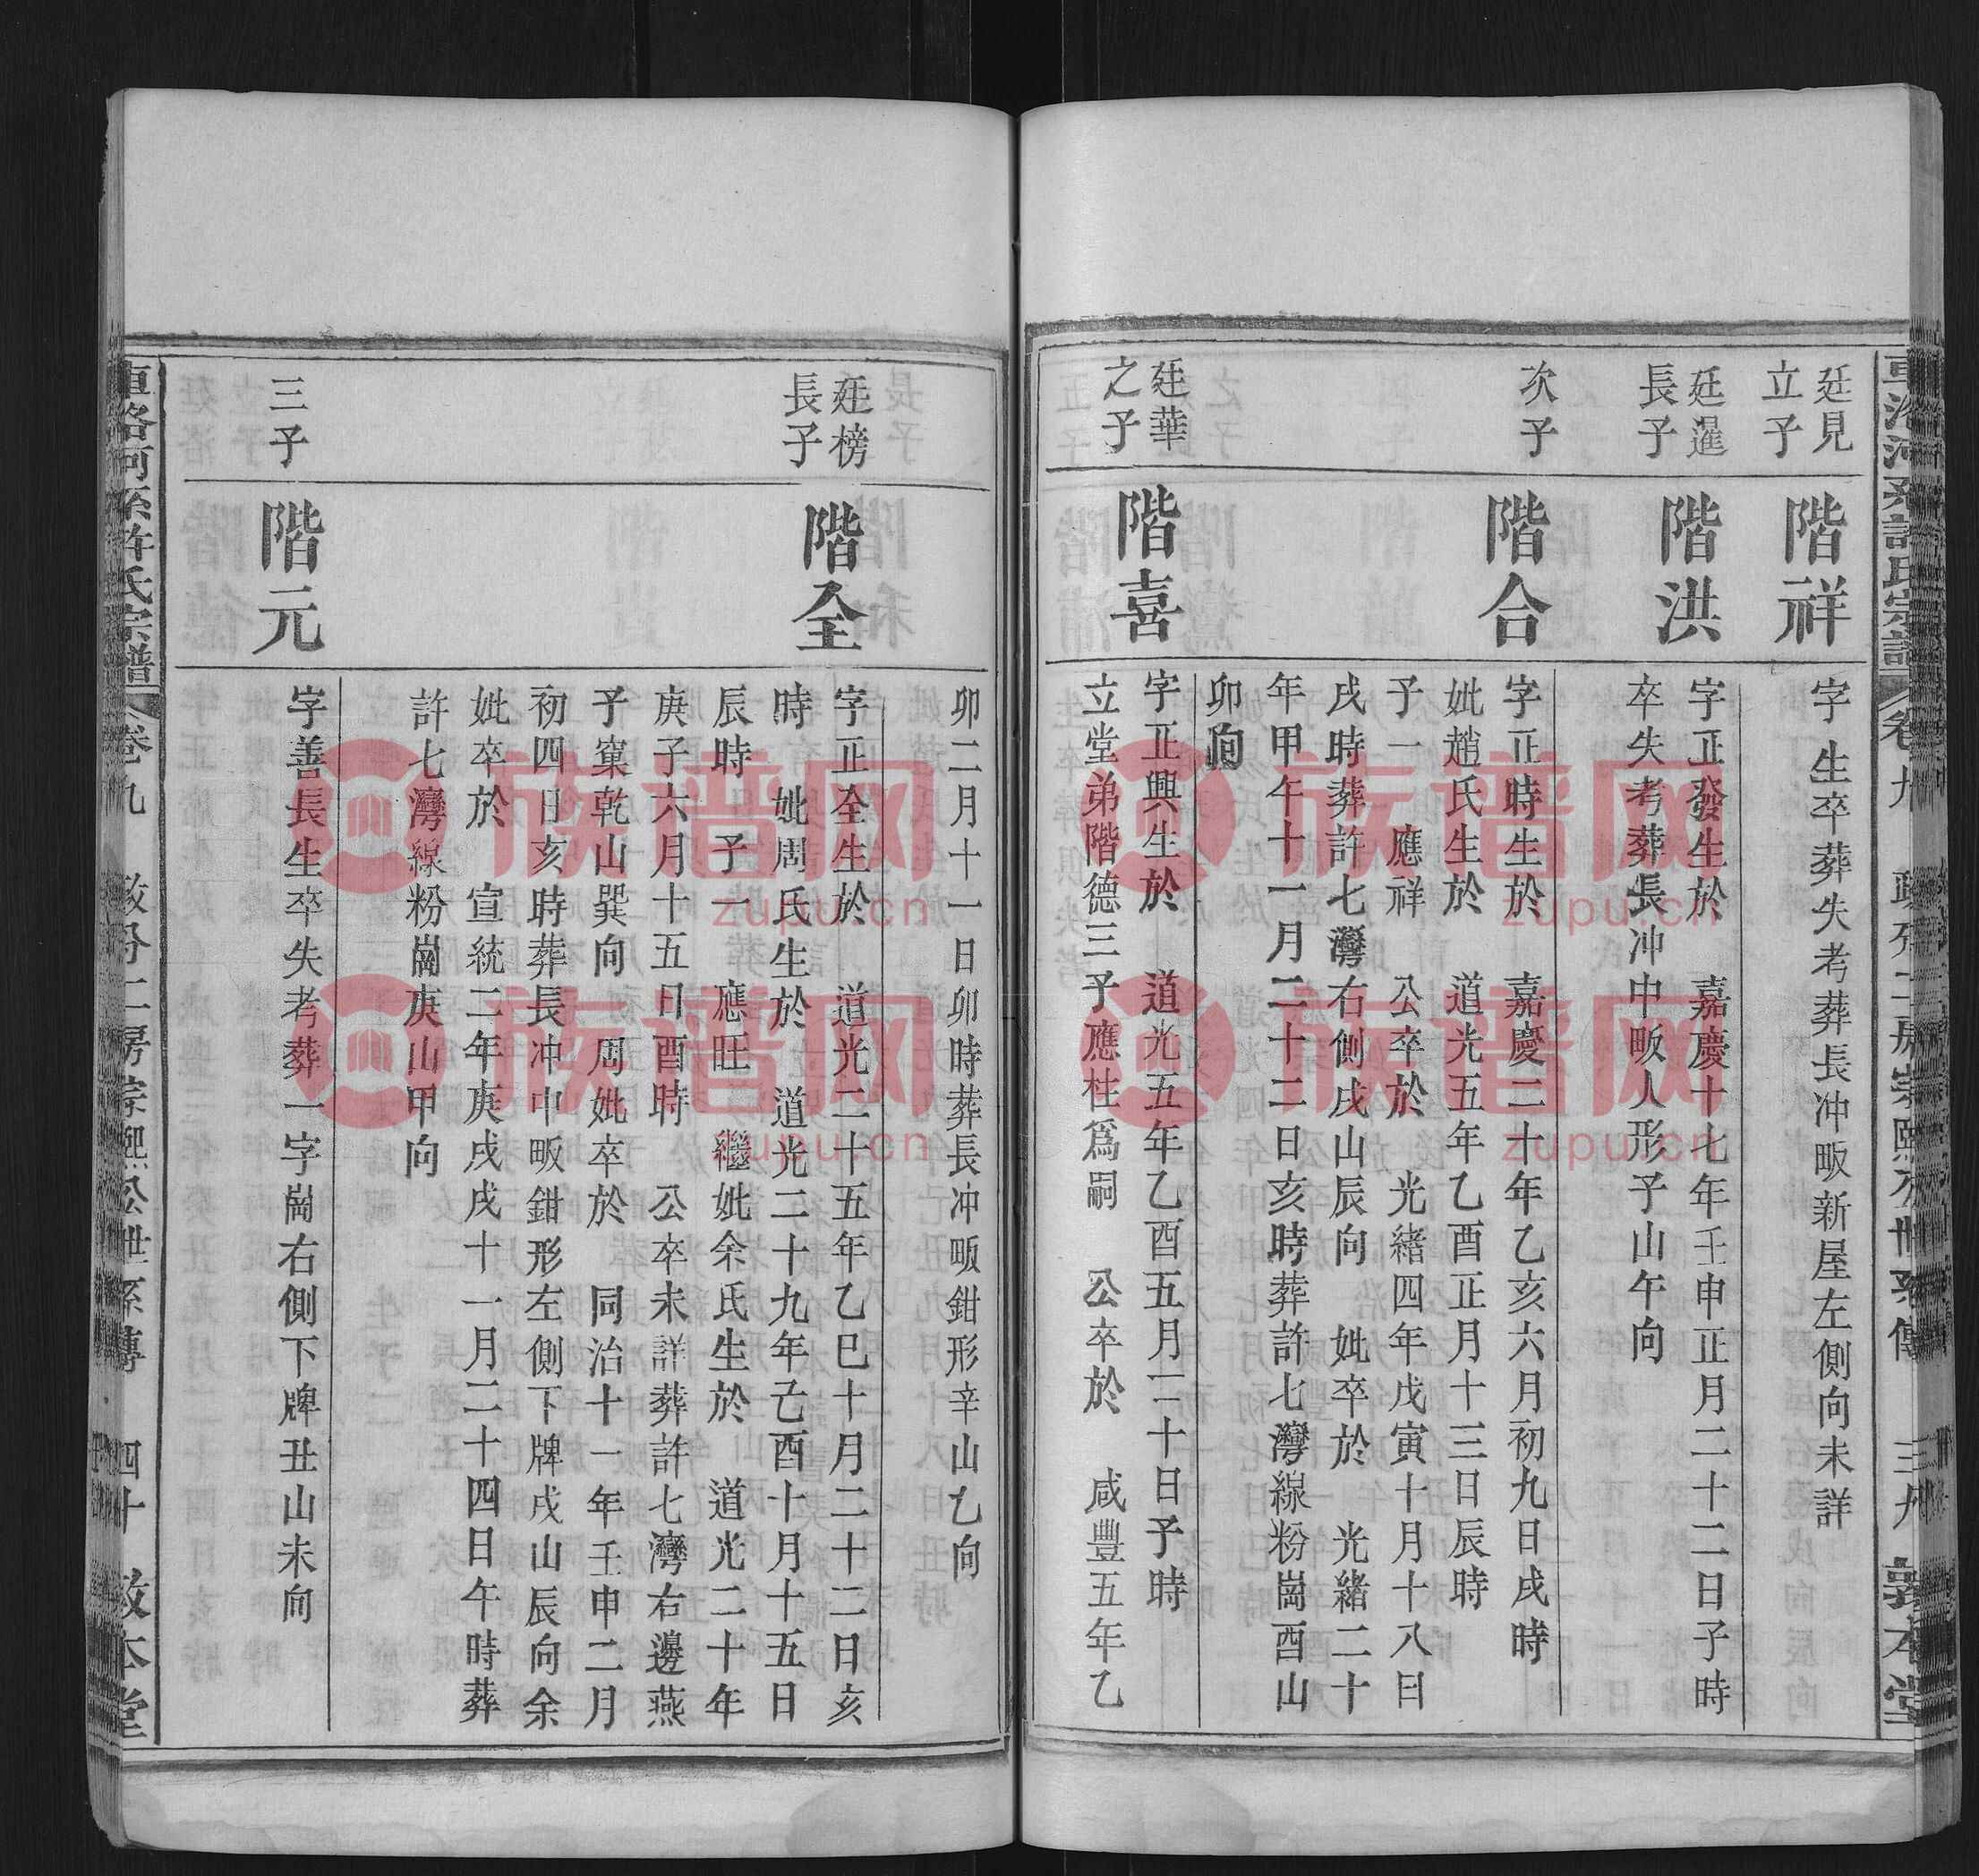 廷見
立子
階祥
字 生卒葬失考葬長冲畈新屋左側向未詳
廷暹
長子
階洪
字正發生於 嘉慶十七年壬申正月二十二日子時
卒失考葬長冲中畈人形子山午向
次子
階合
字正時生於 嘉慶二十年乙亥六月初九日戌時
妣趙氏生於 道光五年乙酉正月十三日辰時
子一 應祥 公卒於 光緒四年戊寅十月十八日
戌時葬許七灣右側戌山辰向 妣卒於 光緒二十
年甲午十一月二十二日亥時葬許七灣線粉崗酉山
卯向
廷華
之子
階喜
字正興生於 道光五年乙酉五月二十日子時
立堂弟階德三子應柱爲嗣 公卒於 咸豐五年乙
卯二月十一日卯時葬長冲畈鉗形辛山乙向
廷榜
長子
階全
字正全生於 道光二十五年乙巳十月二十二日亥
時 妣周氏生於 道光二十九年己酉十月十五日
辰時 子一 應旺 繼妣余氏生於 道光二十年
庚子六月十五日酉時 公卒未詳葬許七灣右邊燕
子窠乾山巽向 周妣卒於 同治十一年壬申二月
初四日亥時葬長冲中畈鉗形左側下牌戌山辰向余
妣卒於 宣統二年庚戌十一月二十四日午時葬
許七灣線粉崗庚山甲向
三子
階元
字善長生卒失考葬一字崗右側下牌丑山未向
卷九
四十
族譜网
zupu.cn
族譜网
zupu.cn
族譜网
zupu.cn
族譜网
zupu.cn